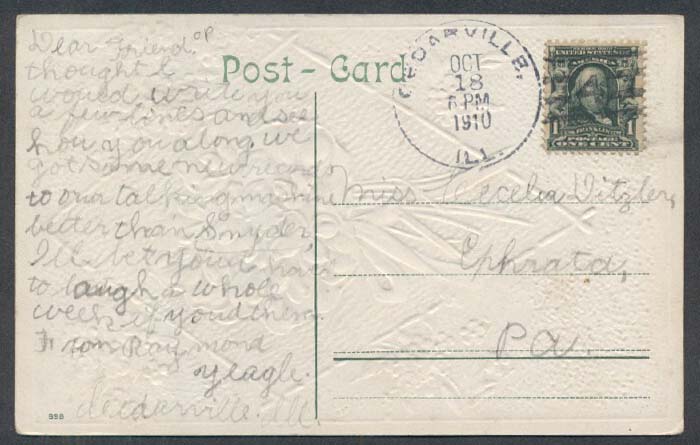 Dear Friend.
thought I
would write you
a few lines and see
how you along. we
got some new records
to our talking machine
better than Snyder,
I'll bet you'll have
to laugh a whole
week if you'd them.
From Raymond
Yeagle.
Cedarville. Ill
Post - Card
CEDARVILLE,
OCT
18
6 PM
1910
ILL.
UNITED STATES OF
AMERICA
1 1
FRANKLIN
POSTAGE
ONE CENT
Miss Cecelia Vitzler,
Ephrata,
Pa.
998